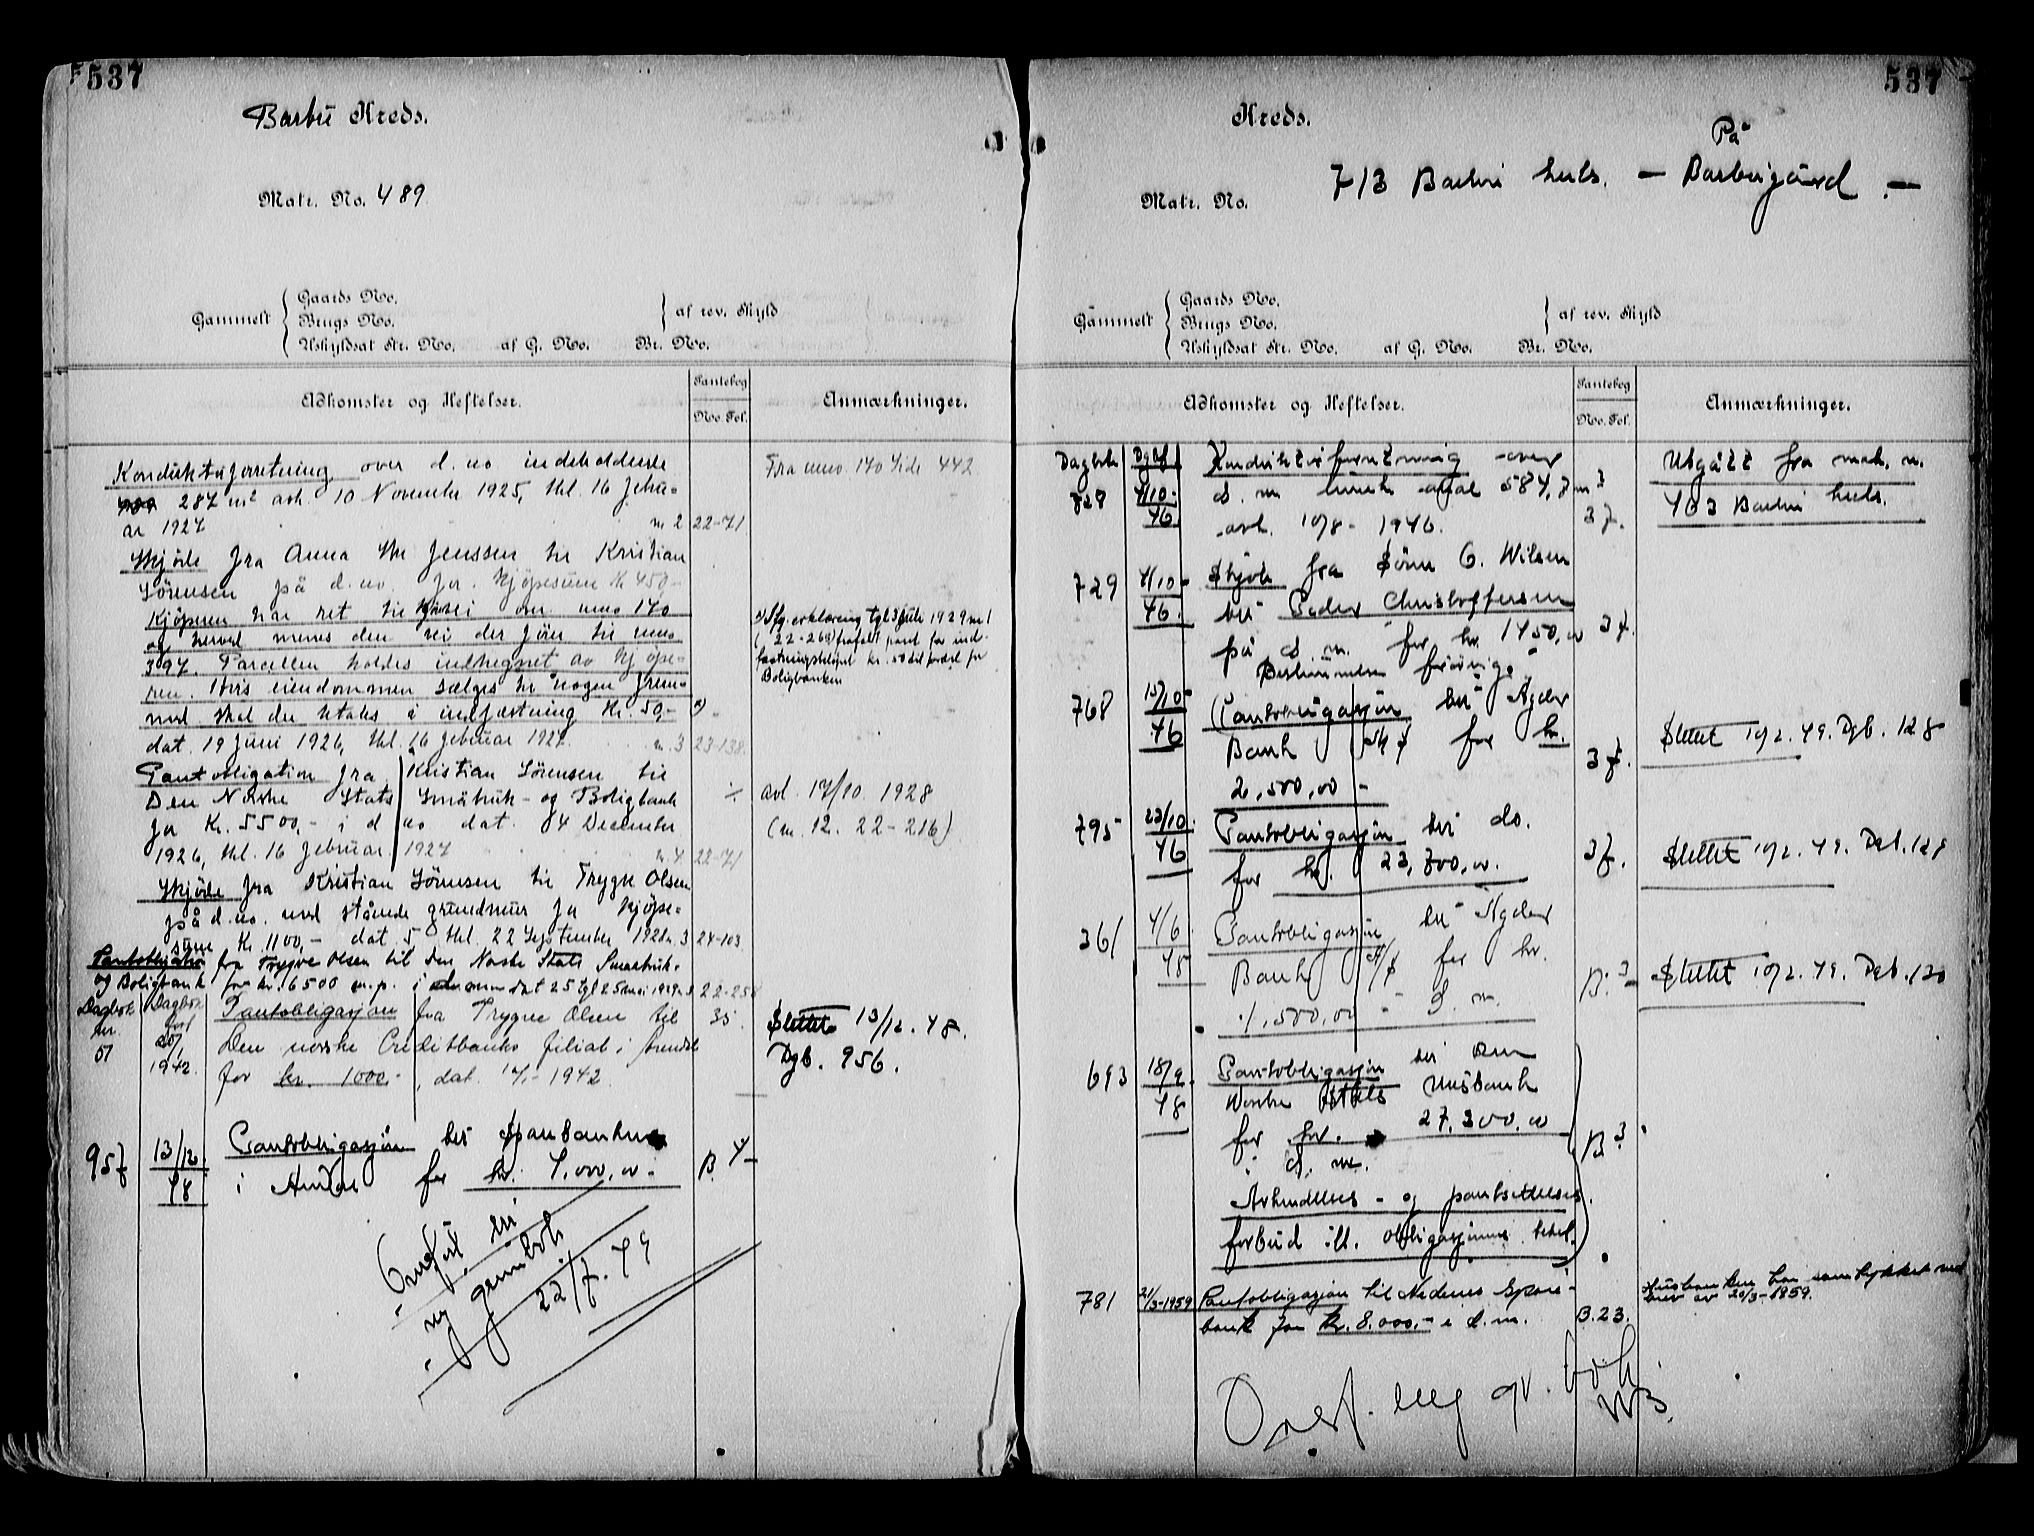 537
Barbu Kreds.
Matr. No. 489
Gammelt
Gaards No.
Brugs No.
Uskyldsat Str. No. af G. No. Br. No.
af rev. Skyld
Adkomster og Heftelser.
Pantebog
No. Fol.
Anmærkninger.
Konduktørforretning over d. no indeholdende
287 m² avh. 10 November 1925, thl. 16 febru-
ar 1927 n 2 22-71
Fra mno 140 Side 442
Skjöte fra Anna Jenssen til Kristian
Sörensen på d. no for kjöpesum kr 450,-
Kjöperen har ret til vei over mno 140
og herved menes den vei der förer til mno
397. Parcellen holdes indhegnet av kjöpe-
ren. Hvis eiendommen sælges til nogen frem-
med skal der betales i indfæstning kr. 50,-
dat. 19 Juni 1926, thl. 16 februar 1927. n. 3 23-138
Ifg. erklæring tgl 3 Juli 1929 n 1
(22-268) frafaldt pant for ind-
fæstningsbeløpet kr. 50 til fordel for
Boligbanken
Pantobligation fra Kristian Sörensen til
Den Norske Stats Småbruk- og Boligbank
for Kr. 5500,- i d no dat. 4 December
1926, thl. 16 februar 1927 n. 4 22-71
avl. 17/10 1928
(n. 12. 22-216)
Skjöte fra Kristian Sörensen til Trygve Olsen
på d. no. med stående grundmur for kjöpe-
sum Kr. 1100,- dat 5 thl. 22 September 1928 n. 3 24-103
Pantobligation fra Trygve Olsen til Den Norske Stats Smaabruk-
og Boligbank for kr. 6500 m.p. i dat 25 tgl 25 mai 1929 n. 22-258
Dagbok
nr.
51
Dagbok
1942.
Pantobligasjon fra Trygve Olsen til 35
Den norske Creditbanks filial i Arendal
for kr. 1000,- , dat. 1942
Slettet 13/12. 48.
Dgb. 956.
957 13/12. 48 Pantobligasjon til Sparebanken
i Arendal for kr. 4.000,00.- B. 4
Overført til
ny grunnbok
22/7. 49
537
Kreds.
På
Matr. No. 713 Barbu huls. — Barbugård. —
Gammelt
Gaards No.
Brugs No.
Uskyldsat Str. No. af G. No. Br. No.
af rev. Skyld
Adkomster og Heftelser.
Pantebog
No. Fol.
Anmærkninger.
Dagbok
728 4/10. 46 Konduktørforretning over
d. m. areal 584,7 m²
avh. 10/8 - 1946. 37.
Utgått fra matr. n.
703 Barbu huls.
729 4/10 46. Skjøte fra Søren G. Nilsen
til Peder Christoffersen
på d. m. for kr. 1450,00 37.
Bestemmelser forøvrig.
768 15/10 46 Pantobligasjon til Agder
Bank A/S for kr.
2.500,00 - 37.
Slettet 10/2. 49. Dgb. 128
795 23/10. 46 Pantobligasjon til do.
for kr. 23.800,00. 37.
Slettet 10/2. 49. Dgb. 129
361 4/6 48 Pantobligasjon til Agder
Bank A/S for kr.
1.500,00 - d. m. B. 3
Slettet 10/2. 49. Dgb. 130
693 18/9. 48 Pantobligasjon til Den
Norske Stats Husbank
for kr. 27.300,00
i d. m. B 3
Avhendelses- og pantsettelses-
forbud ifl. obligasjonens bekst.
781 21/3-1959 Pantobligasjon til Nedenes Spare-
bank for kr. 8.000,- i d. m. B. 23.
Husbanken har samtykket ved
brev av 20/3-1959.
Overf. ny gr. bok